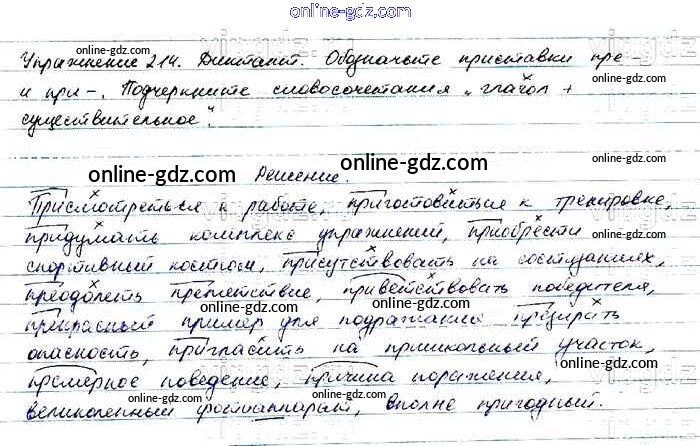 online-gdz.com
Упражнение 214. Диктант. Обозначьте приставки пре-
online-gdz.com
online-gdz.com
и при-. Подчеркните словосочетания „глагол +
существительное".
online-gdz.com
online-gdz.com
Решение.
online-gdz.com
Присмотреться к работе, приготовиться к тренировке,
придумать комплекс упражнений, приобрести
спортивный костюм, присутствовать на состязаниях,
online-gdz.com
преодолеть препятствие, приветствовать победителя,
online-gdz.com
прекрасный пример для подражания презирать
опасность, пригласить на пришкольный участок,
online-gdz.com
примерное поведение, причина поражения,
online-gdz.com
online-gdz.com
великолепный фотоаппарат, вполне пригодный.